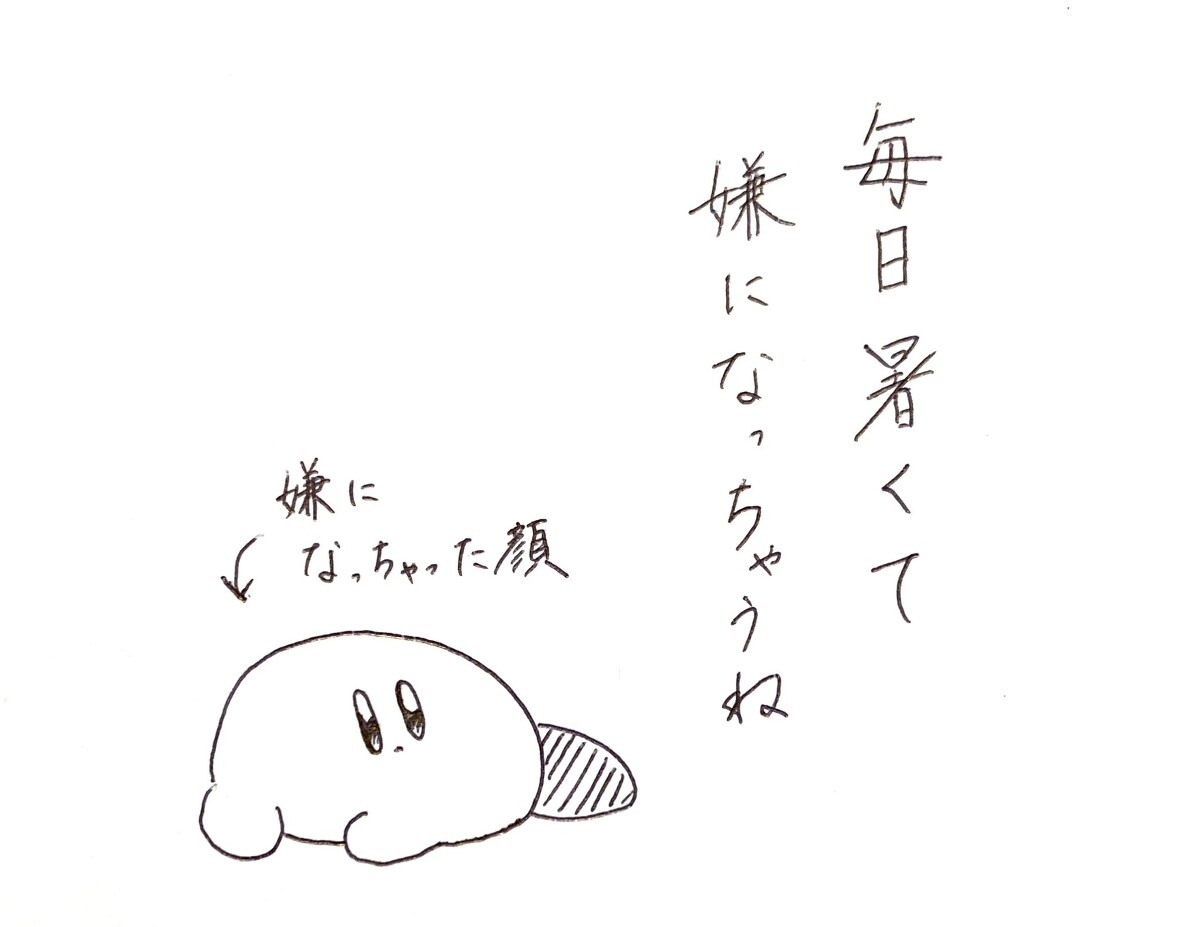 毎日暑くて
嫌になっちゃうね
嫌に
なっちゃった顔